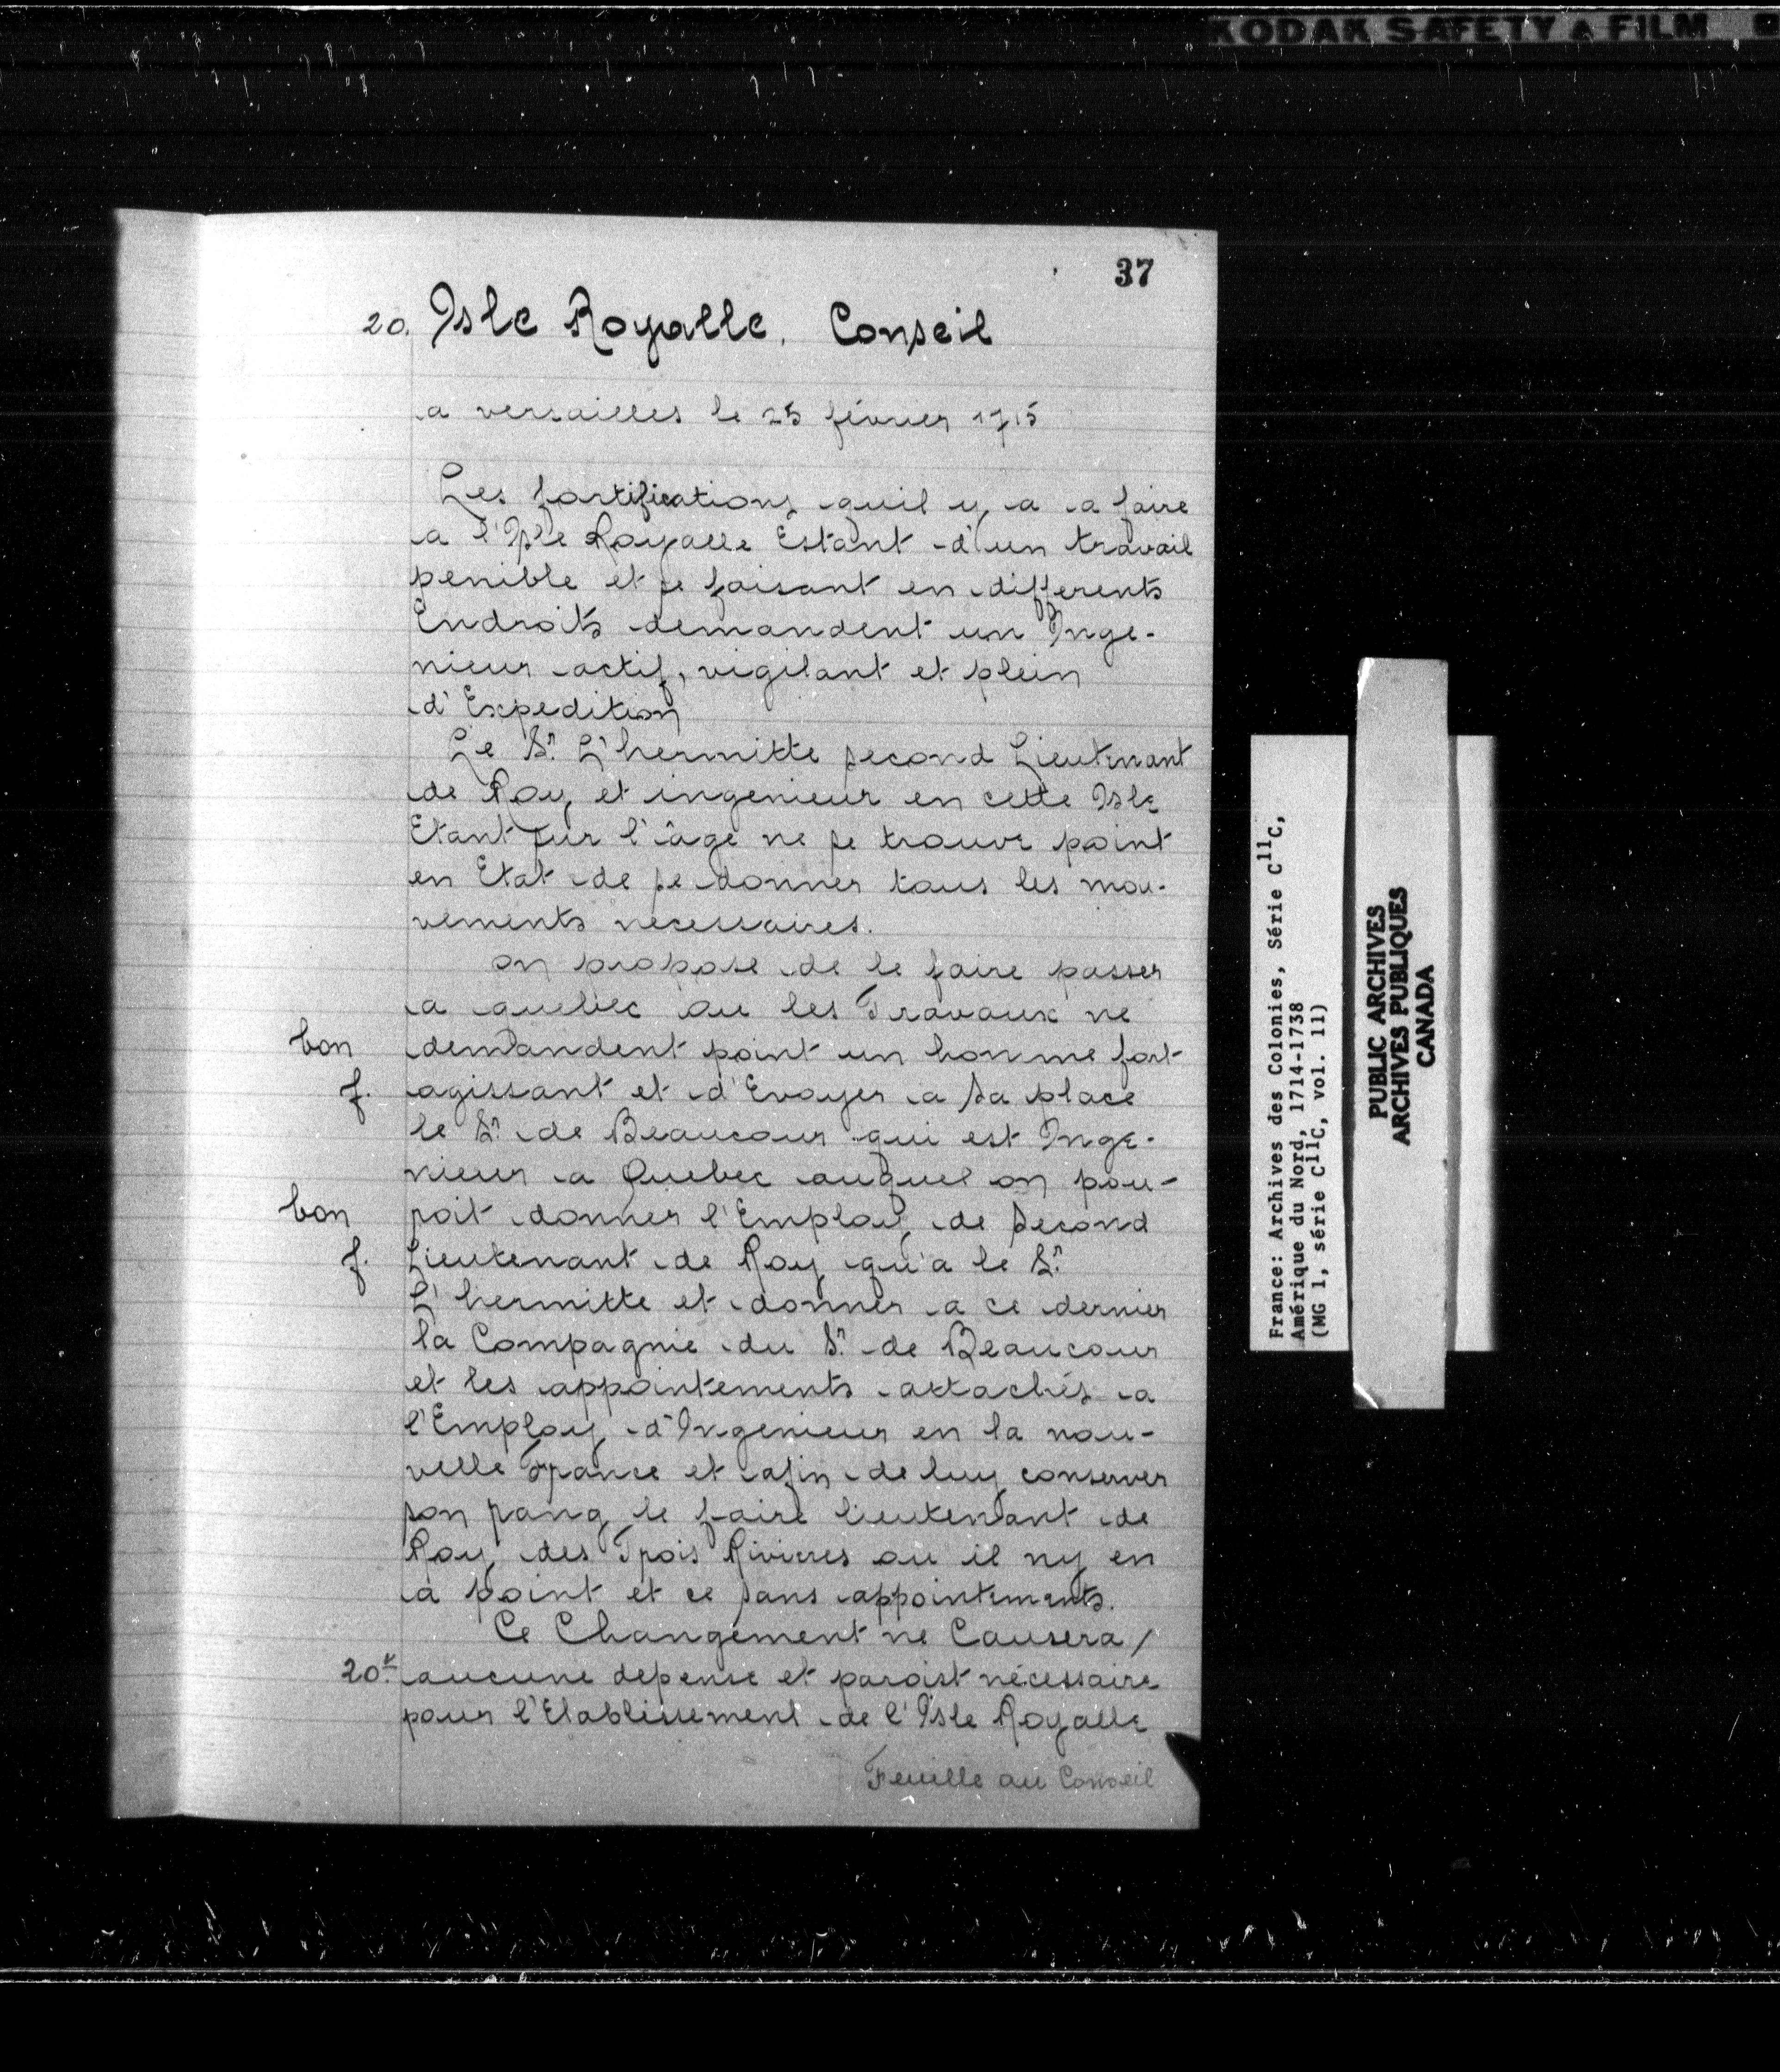 KODAK SAFETY FILM
37
20. Isle Royalle. Conseil
a versailles le 25 février 1715
Les fortifications quil y a a faire
a l'Isle Royalle Estant d'un travail
penible et se faisant en differents
Endroits demandent un Inge-
nieur actif, vigilant et plein
d'Expedition
Le Sr. L'hermitte second Lieutenant
de Roy et ingenieur en cette Isle
Etant sur l'âge ne se trouve point
en Etat de se donner tous les mou-
vements necessaires.
on propose de le faire passer
a quebec ou les Travaux ne
bon demandent point un homme fort
f. agissant et d'Evoyer a sa place
le Sr. de Beaucour qui est Inge-
nieur a Quebec auquel on pou-
bon roit donner l'Employ de second
f. Lieutenant de Roy qu'a le Sr.
L'hermitte et donner a ce dernier
la Compagnie du Sr. de Beaucour
et les appointements attachés a
l'Employ d'Ingenieur en la nou-
velle France et afin de luy conserver
son rang le faire lieutenant de
Roy des Trois Rivieres ou il ny en
a point et ce sans appointements.
Ce Changement ne Causera /
20v. aucune depense et paroist nécessaire
pour l'Etablissement de l'Isle Royalle
Feuille au Conseil
France: Archives des Colonies, Série C11C,
Amérique du Nord, 1714-1738
(MG 1, série C11C, vol. 11)
PUBLIC ARCHIVES
ARCHIVES PUBLIQUES
CANADA